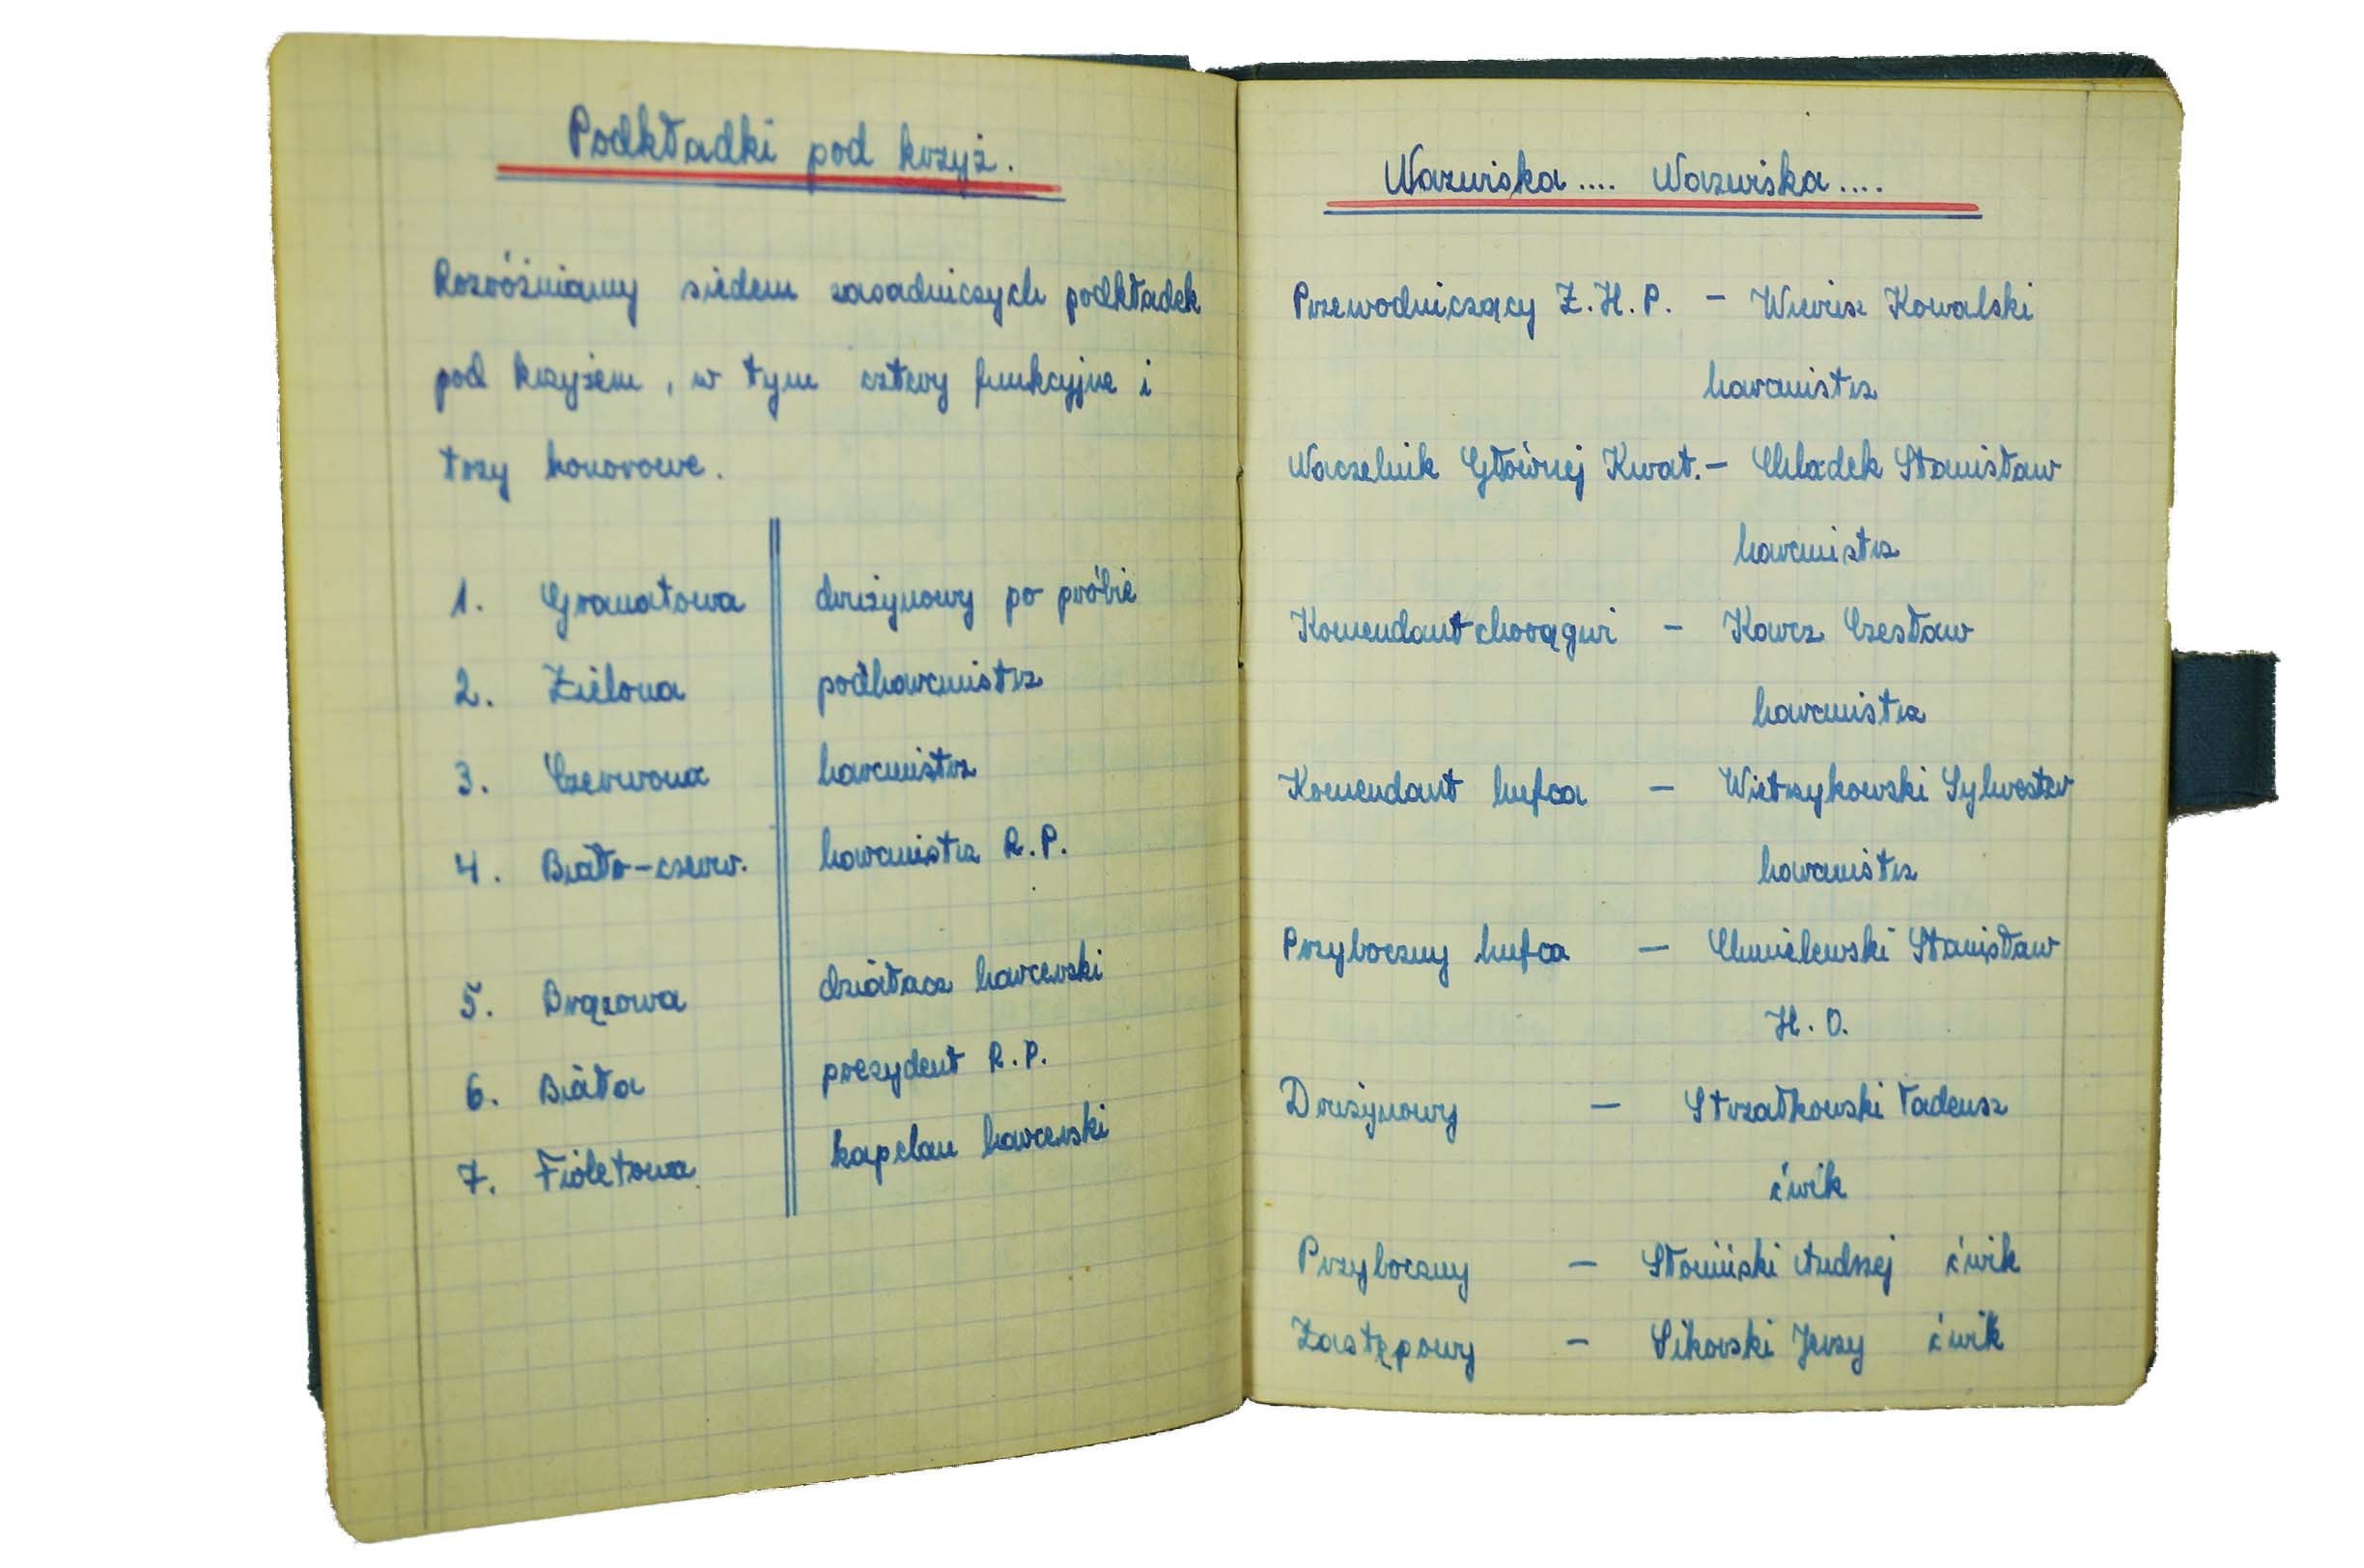 Podkładki pod krzyż.
Rozróżniamy siedem zasadniczych podkładek
pod krzyżem, w tym cztery funkcyjne i
trzy honorowe.
1. Granatowa drużynowy po próbie
2. Zielona podharcmistrz
3. Czerwona harcmistrz
4. Biało-czerw. harcmistrz R.P.
5. Brązowa działacz harcerski
6. Biała prezydent R.P.
7. Fioletowa kapelan harcerski
Nazwiska.... Nazwiska....
Przewodniczący Z.H.P. - Wierusz Kowalski
harcmistrz
Naczelnik Głównej Kwat. - Chladek Stanisław
harcmistrz
Komendant chorągwi - Karcz Czesław
harcmistrz
Komendant hufca - Wietrzykowski Sylwester
harcmistrz
Przyboczny hufca - Chmielewski Stanisław
H.O.
Drużynowy - Strzałkowski Tadeusz
ćwik
Przyboczny - Słomiński Andrzej ćwik
Zastępowy - Sikorski Jerzy ćwik